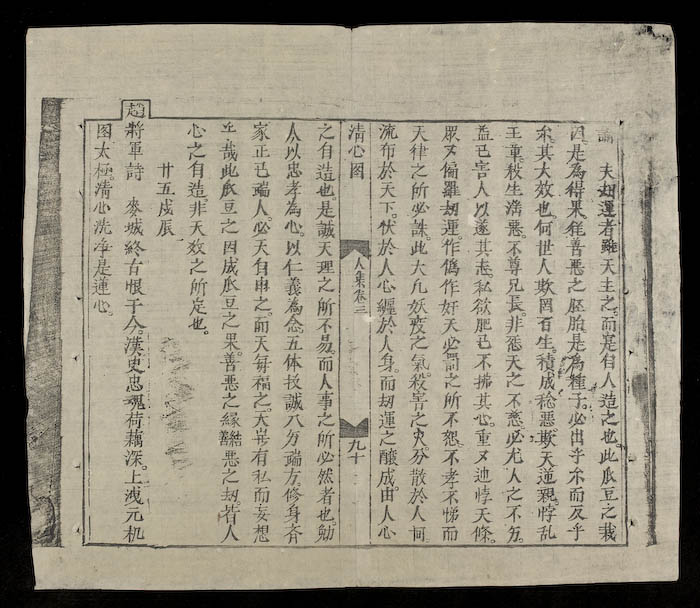 論　夫刼運者雖天主之。而寔自人造之也。此瓜豆之栽
因是為得果。善惡之胚胎是為種子。必出乎尒而反乎
尒。其大效也。何世人欺罔百生。積成稔惡。欺天逆親。悖乱
王章。秋生惡。不尊兄長。非天之不慈。必尤人之不
益己害人以遂其志。私欲肥己。不拂其心。重又迪悖天條。
眾又偏羅刼運。作偽作奸。天必罰之所不恕。不孝不悌而
天律之所必誅。此大凡妖疫之氣。殺害之火。分散於人間
流布於天下。伏於人心。纏於人身。而刼運之釀成。由人心
清心图
人集卷三
九十
之自造也。是誠天理之所不易。而人事之所必然者也。勉
人以忠孝為心。以仁義為念。五体投誠。八方端方。修身齐
家。正己端人。必天自申之。而天每福之。天豈有私而妄想
乎哉。此瓜豆之因。成瓜豆之果。善惡之縁。結善惡之刼。皆人
心之自造。非天效之所定也。
廿五戍辰
趙
將軍詩　麥城終古恨于今。漢史忠魂荷藉深。上洩元机
图太極。清心洗净是蓮心。